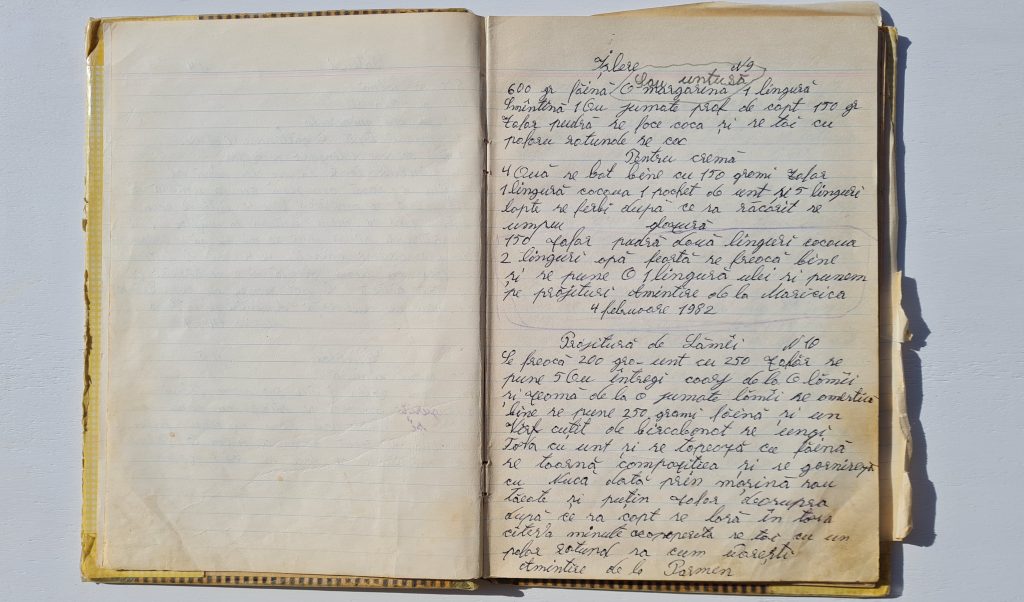 Zilere N9
sau untură
600 gr făină O margarină 1 lingură
Smîntînă 1 Ou jumate prof de copt 150 gr
Zafar pudră se face coca și se tai cu
paharu rotunde se coc
Pentru cremă
4 Ouă se bat bine cu 150 grami zafar
1 lingură cacaua 1 pachet de unt și 5 linguri
lapte se ferbi după ce sa răcărit se
umplu glazură
150 zafar pudră două linguri cocoua
2 linguri apă feartă se freacă bine
și se pune O 1 lingură ulei si punem
pe prăjituri Amintire de la Maricica
4 februoare 1982
Prăjitură de Lămîi N 10
Se freacă 200 gra- unt cu 250 zafăr se
pune 5 Ou întregi coarj de la O lămîi
și zeamă de la o jumate lămîi se amestica
bine se pune 250 grami făină și un
Vîrf cuțit de bircabonat se ungi
Tova cu unt și se tapează cu făină
se toarnă compozițiea și se garnireză
cu Nucă dată prin mașină sau
tăeate și puțin zafar deasupra
după ce sa copt se lasă în tova
citeva minute acoperita se tai cu un
pahar rotund sa cum dorești
Amintire de la Parmen